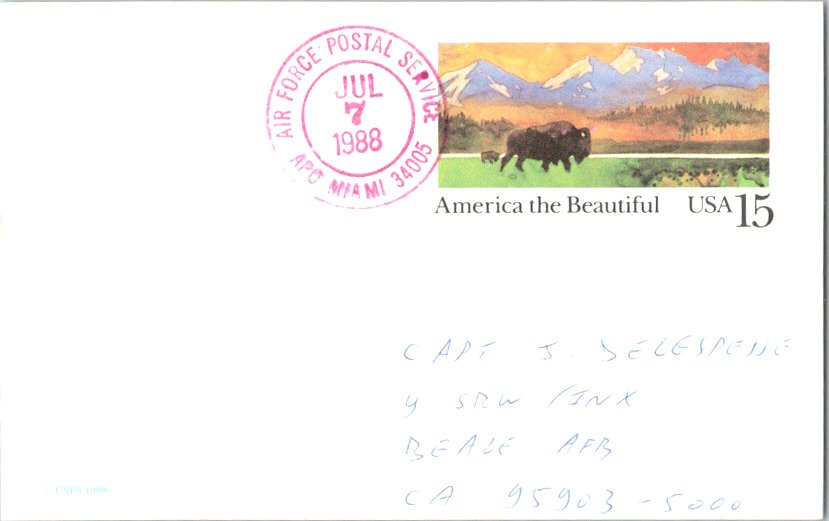 AIR FORCE POSTAL SERVICE
JUL
7
1988
APO MIAMI 34005
America the Beautiful USA 15
CAPT J. DELESPENE
9 SRW /INX
BEALE AFB
CA 95903-5000
© USPS 1988